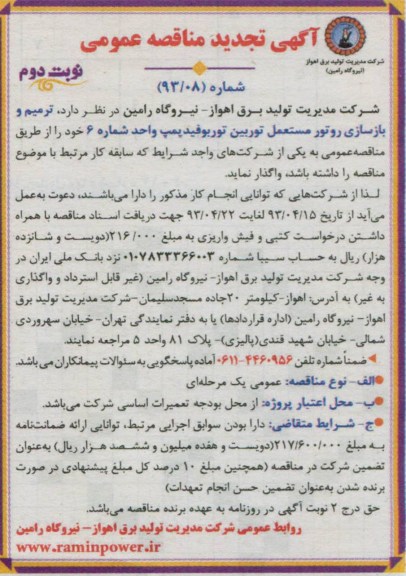 آگهی تجدید مناقصه عمومی
شرکت مدیریت تولید برق اهواز
(نیروگاه رامین)
نوبت دوم
شماره (۹۳/۰۸)
شرکت مدیریت تولید برق اهواز- نیروگاه رامین در نظر دارد، ترمیم و
بازسازی روتور مستعمل توربین توربوفیدپمپ واحد شماره ۶ خود را از طریق
مناقصه‌عمومی به یکی از شرکت‌های واجد شرایط که سابقه کار مرتبط با موضوع
مناقصه را داشته باشد، واگذار نماید.
لـذا از شرکت‌هایی که توانایی انجام کار مذکور را دارا می‌باشند، دعوت به‌عمل
می‌آید از تاریخ ۹۳/۰۴/۱۵ لغایت ۹۳/۰۴/۲۲ جهت دریافت اسناد مناقصه با همراه
داشتن درخواست کتبی و فیش واریزی به مبلغ ۲۱۶/۰۰۰ (دویست و شانزده
هزار) ریال به حساب سیبا شماره ۰۱۰۷۸۳۳۳۶۶۰۰۳ نزد بانک ملی ایران در
وجه شرکت مدیریت تولید برق اهواز- نیروگاه رامین (غیر قابل استرداد و واگذاری
به غیر) به آدرس: اهواز-کیلومتر ۲۰جاده مسجدسلیمان-شرکت مدیریت تولید برق
اهواز- نیروگاه رامین (اداره قراردادها) یا به دفتر نمایندگی تهران- خیابان سهروردی
شمالی- خیابان شهید قندی(پالیزی)- پلاک ۸۱ واحد ۵ مراجعه نمایند.
ضمناً شماره تلفن ۴۴۶۰۹۵۶-۰۶۱۱ آماده پاسخگویی به سئوالات پیمانکاران می باشد.
الف- نوع مناقصه: عمومی یک مرحله‌ای
ب- محل اعتبار پروژه: از محل بودجه تعمیرات اساسی شرکت می‌باشد.
ج- شرایط متقاضی: دارا بودن سوابق اجرایی مرتبط، توانایی ارائه ضمانت‌نامه
به مبلغ ۲۱۷/۶۰۰/۰۰۰(دویست و هفده میلیون و ششصد هزار ریال) به‌عنوان
تضمین شرکت در مناقصه (همچنین مبلغ ۱۰ درصد کل مبلغ پیشنهادی در صورت
برنده شدن به‌عنوان تضمین حسن انجام تعهدات)
حق درج ۲ نوبت آگهی در روزنامه به عهده برنده مناقصه می‌باشد.
روابط عمومی شرکت مدیریت تولید برق اهواز- نیروگاه رامین
www.raminpower.ir